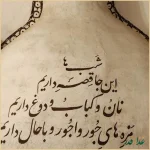 شب‌ها
این جا قصه داریم
نان و کباب و دوغ داریم
مزه های جور واجور و باحال داریم